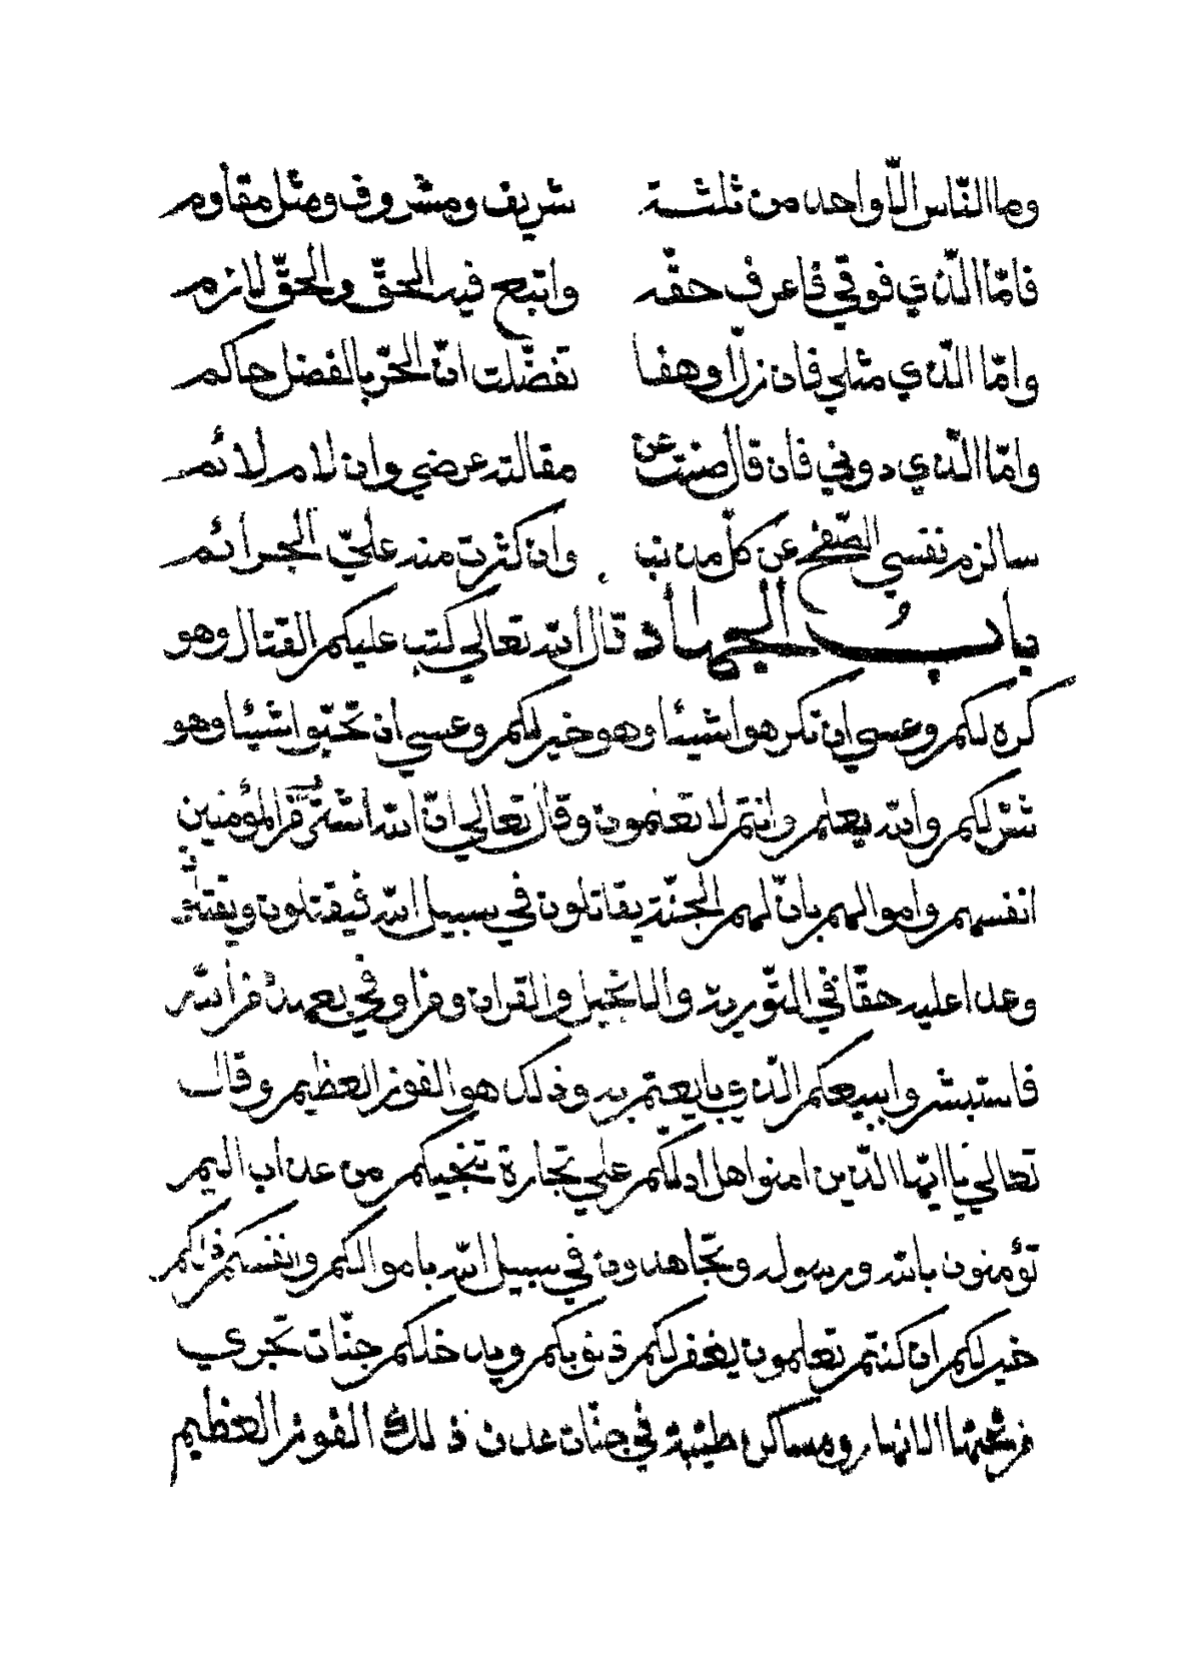 وما النّاس الّا واحد من ثلثة شريف ومشروف ومثل مقاوم
فامّا الّذي فوقي فاعرف حقّه واتبع فيه الحقّ والحقّ لازم
وامّا الذي مثلي فان زلّ او هفا تفضّلت انّ الحرّ بالفضل حاكم
وامّا الّذي دوني فان قال صنت عن مقالته عرضي وان لام لائم
سالزم نفسي الصّفح عن كلّ مذنب وان كثرت منه عليّ الجرائم
بابُ الجهاد قال الله تعالي كتب عليكم القتال وهو
كره لكم وعسي ان تكرهوا شيئا وهو خير لكم وعسي ان تحبّوا شيئا وهو
شرّ لكم والله يعلم وانتم لا تعلمون وقال تعالي انّ الله اشتري من المؤمنين
انفسهم واموالهم بانّ لهم الجنّة يقاتلون في سبيل الله فيقتلون ويقتلون
وعدا عليه حقّا في التّورية والانجيل والقران ومن اوفي بعهده من الله
فاستبشروا ببيعكم الّذي بايعتم به وذلك هو الفوز العظيم وقال
تعالي يا ايّها الّذين امنوا هل ادلّكم علي تجارة تنجيكم من عذاب اليم
تؤمنون بالله ورسوله وتجاهدون في سبيل الله باموالكم وانفسكم ذلكم
خير لكم ان كنتم تعلمون يغفر لكم ذنوبكم ويدخلكم جنّات تجري
من تحتها الانهار ومساكن طيّبة في جنّات عدن ذلك الفوز العظيم